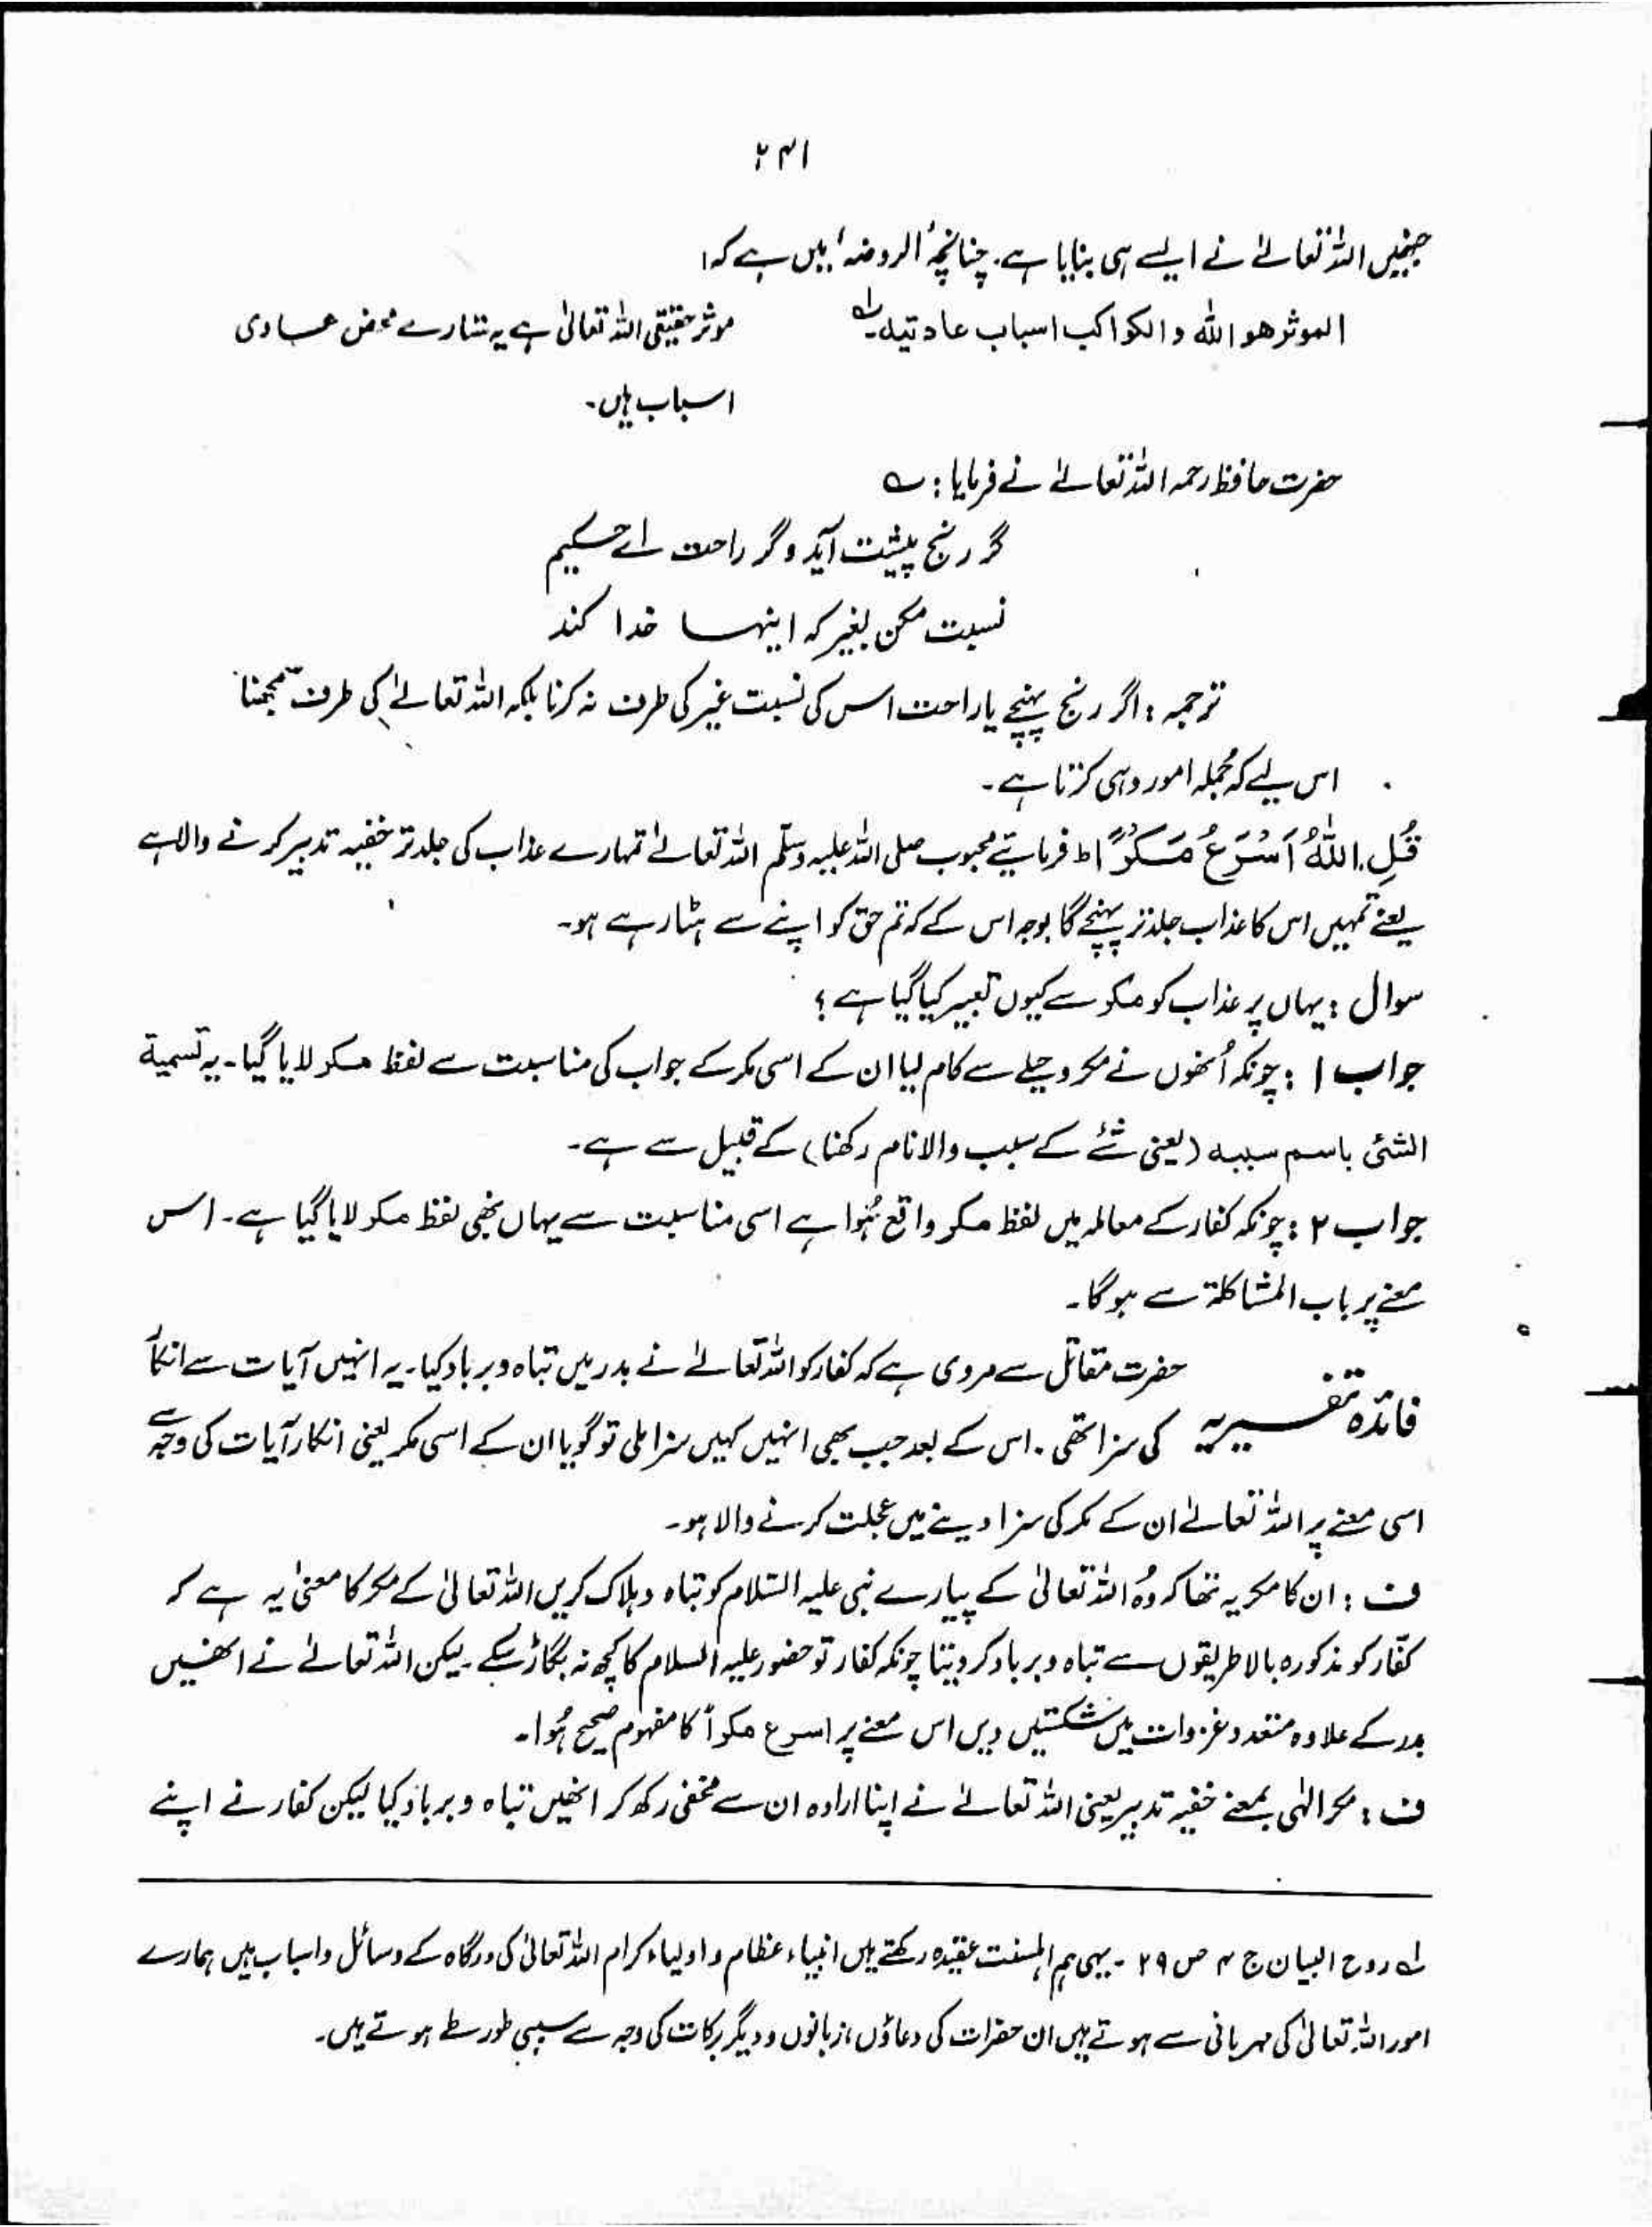 ۲۴۱
جنہیں اللہ تعالےٰ نے ایسے ہی بنایا ہے۔ چنانچہ "الروضہ" میں ہے کہ:
الموثر هو اللّٰه والكواكب اسباب عادتيه۔ لہ
موثر حقیقی اللہ تعالیٰ ہے یہ ستارے محض عادی
اسباب ہیں۔
حضرت حافظ رحمہ اللہ تعالےٰ نے فرمایا : ؎
گر رنج پیشت آید وگر راحت اے حکیم
نسبت مکن بغیر کہ اینہا خدا کند
ترجمہ : اگر رنج پہنچے یا راحت اس کی نسبت غیر کی طرف نہ کرنا بلکہ اللہ تعالےٰ کی طرف سمجھنا
اس لیے کہ جملہ امور وہی کرتا ہے۔
قُلِ اللّٰهُ اَسْرَعُ مَكْرًا ط فرمایئے محبوب صلی اللہ علیہ وسلم اللہ تعالےٰ تمہارے عذاب کی جلد تر خفیہ تدبیر کرنے والا ہے
یعنے تمہیں اس کا عذاب جلد تر پہنچے گا بوجہ اس کے کہ تم حق کو اپنے سے ہٹا رہے ہو۔
سوال : یہاں پر عذاب کو مکر سے کیوں تعبیر کیا گیا ہے ؟
جواب ۱ : چونکہ اُنھوں نے مکر و حیلے سے کام لیا ان کے اسی مکر کے جواب کی مناسبت سے لفظ مکر لایا گیا۔ یہ تسمية
الشئی باسم سببه (یعنی شئے کے سبب والا نام رکھنا) کے قبیل سے ہے۔
جواب ۲ : چونکہ کفار کے معاملہ میں لفظ مکر واقع ہُوا ہے اسی مناسبت سے یہاں بھی لفظ مکر لایا گیا ہے۔ اس
معنے پر باب المشاکلۃ سے ہوگا۔
فائدہ تفسیریہ
حضرت مقاتل سے مروی ہے کہ کفار کو اللہ تعالےٰ نے بدر میں تباہ و برباد کیا۔ یہ انہیں آیات سے انکار
کی سزا تھی۔ اس کے بعد جب بھی انہیں کہیں سزا ملی تو گویا ان کے اسی مکر یعنی انکار آیات کی وجہ سے
اسی معنے پر اللہ تعالےٰ ان کے مکر کی سزا دینے میں عجلت کرنے والا ہو۔
ف : ان کا مکر یہ تھا کہ وُہ اللہ تعالیٰ کے پیارے نبی علیہ السّلام کو تباہ و ہلاک کریں اللہ تعالیٰ کے مکر کا معنیٰ یہ ہے کہ
کفّار کو مذکورہ بالا طریقوں سے تباہ و برباد کر دینا چونکہ کفار تو حضور علیہ السلام کا کچھ نہ بگاڑ سکے۔ لیکن اللہ تعالےٰ نے انھیں
بدر کے علاوہ متعدد غزوات میں شکستیں دیں اس معنے پر اسرع مکراً کا مفہوم صحیح ہُوا۔
ف : مکر الٰہی بمعنے خفیہ تدبیر یعنی اللہ تعالےٰ نے اپنا ارادہ ان سے مخفی رکھ کر انھیں تباہ و برباد کیا لیکن کفار نے اپنے
لہ روح البیان ج ۴ ص ۲۹ ۔ یہی ہم اہلسنت عقیدہ رکھتے ہیں انبیاء عظام و اولیاء کرام اللہ تعالیٰ کی درگاہ کے وسائل و اسباب ہیں ہمارے
امور اللہ تعالیٰ کی مہربانی سے ہوتے ہیں ان حضرات کی دعاؤں، زبانوں و دیگر برکات کی وجہ سے سببی طور سے ہوتے ہیں۔